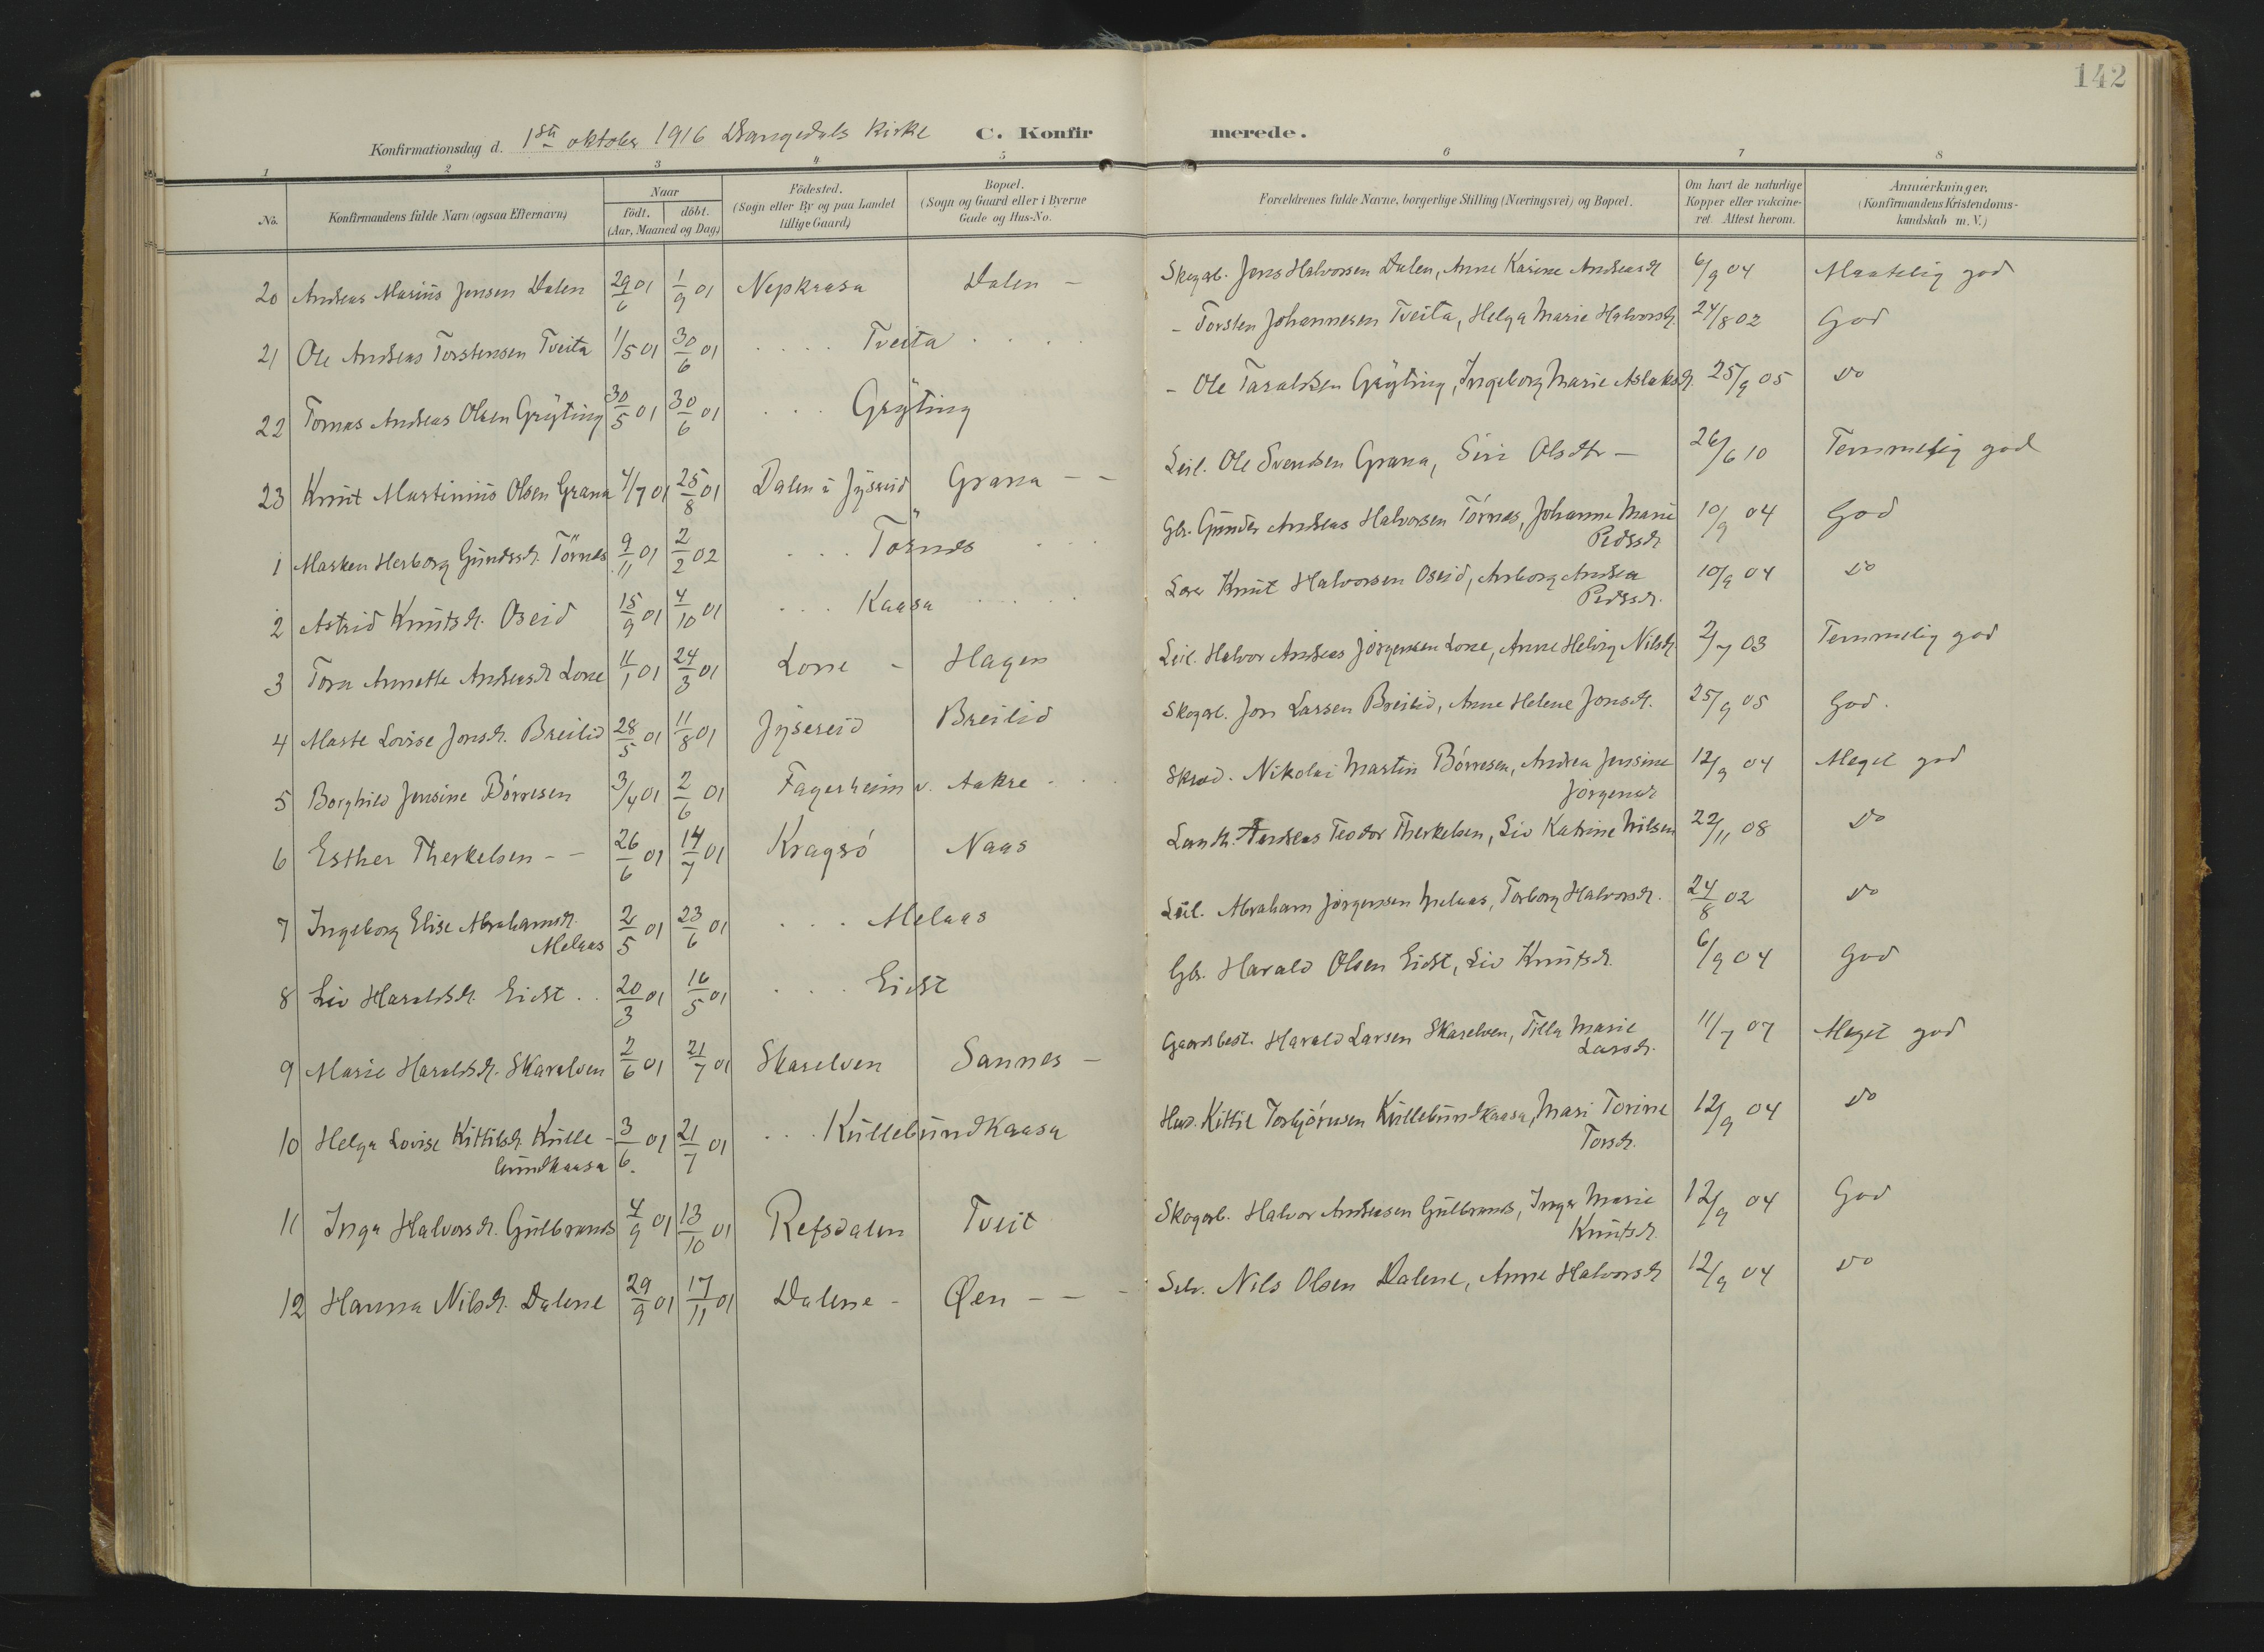 142
Konfirmationsdag d. 1ste oktober 1916 Drangedals Kirke C. Konfir merede.
1 2 3 4 5 6 7 8
No. Konfirmandens fulde Navn (ogsaa Efternavn) Naar födt. döbt. (Aar, Maaned og Dag) Födested. (Sogn eller By og paa Landet tillige Gaard) Bopæl. (Sogn og Gaard eller i Byerne Gade og Hus-No. Forældrenes fulde Navne, borgerlige Stilling (Næringsvei) og Bopæl. Om havt de naturlige Kopper eller vakcineret. Attest herom. Anmærkninger. (Konfirmandens Kristendomskundskab m. V.)
20 Andreas Marius Jensen Dalen 29/6 01 1/9 01 Nepkaasa Dalen - Skogarb. Jens Halvorsen Dalen, Anne Karine Andreasdr 6/9 04 Maatelig god
21 Ole Andreas Torstensen Tveita 1/5 01 30/6 01 .... Tveita .... - Torsten Johannesen Tveita, Helga Marie Halvorsdr. 24/8 02 God
22 Tomas Andreas Olsen Grÿting 30/5 01 30/6 01 ... Grÿting - Ole Taraldsen Grÿting, Ingeborg Marie Aslaksdr. 25/9 05 do
23 Knut Martinius Olsen Grana 4/7 01 25/8 01 Dalen i Jÿsereid Grana - - Leil. Ole Svendsen Grana, Siri Olsdtr - 26/6 10 Temmelig god
1 Marken Herborg Gundersdr. Törnes 9/11 01 2/2 02 ... Törnes ... Gbr. Gunder Andreas Halvorsen Törnes, Johanne Marie 10/9 04 God
Pedersdr
2 Astrid Knutsdr. Oseid 15/9 01 4/10 01 ... Kaasa .... Lærer Knut Halvorsen Oseid, Anborg Andrea 10/9 04 do
Pedersdr.
3 Tora Annette Andreasdr Lone 11/1 01 24/3 01 Lone - Hagen Leil. Halvor Andreas Jörgensen Lone, Anne Helvig Nilsdr. 2/7 03 Temmelig god
4 Marte Lovise Jonsdr. Breilid 28/5 01 11/8 01 Jÿsereid Breilid Skogarb. Jon Larsen Breilid, Anne Helene Jonsdr. 25/9 05 God.
5 Borghild Jensine Börresen 3/4 01 2/6 01 Fagerheim v. Aakre .. Skræd. Nikolai Martin Börresen, Andrea Jensine 12/9 04 Meget god
Jörgensdr
6 Esther Therkelsen - - 26/6 01 14/7 01 Kragerö Naas Landh. Andreas Teodor Therkelsen, Liv Katrine Nilsen 22/11 08 do
7 Ingeborg Elise Abrahamsdr. 2/5 01 23/6 01 ... Melaas Leil. Abraham Jörgensen Melaas, Torborg Halvorsdr. 24/8 02 do
Melaas
8 Liv Haraldsdr. Eidst .. 20/3 01 16/5 01 ... Eidst Gbr. Harald Olsen Eidst, Liv Knutsdr. 6/9 04 God
9 Marie Haraldsdr. Skarelven 2/6 01 21/7 01 Skarelven Sannes - Gaardbest. Harald Larsen Skarelven, Tilla Marie 11/7 07 Meget god
Larsdr.
10 Helga Lovise Kittilsdr. Kulle- 3/6 01 21/7 01 ... Küllebundkaasa Hus. Kittil Torbjörnsen Küllebundkaasa, Mari Torine 12/9 04 do
bundkaasa Torsdr.
11 Inga Halvorsdr. Gulbrands 4/9 01 13/10 01 Refsdalen Tveit Skogarb. Halvor Andersen Gulbrands, Inger Marie 12/9 04 God
Knutsdr.
12 Hanna Nilsdr. Dalene 29/9 01 17/11 01 Dalene - Øen - - - Selv. Nils Olsen Dalene, Anne Halvorsdr 12/9 04 do